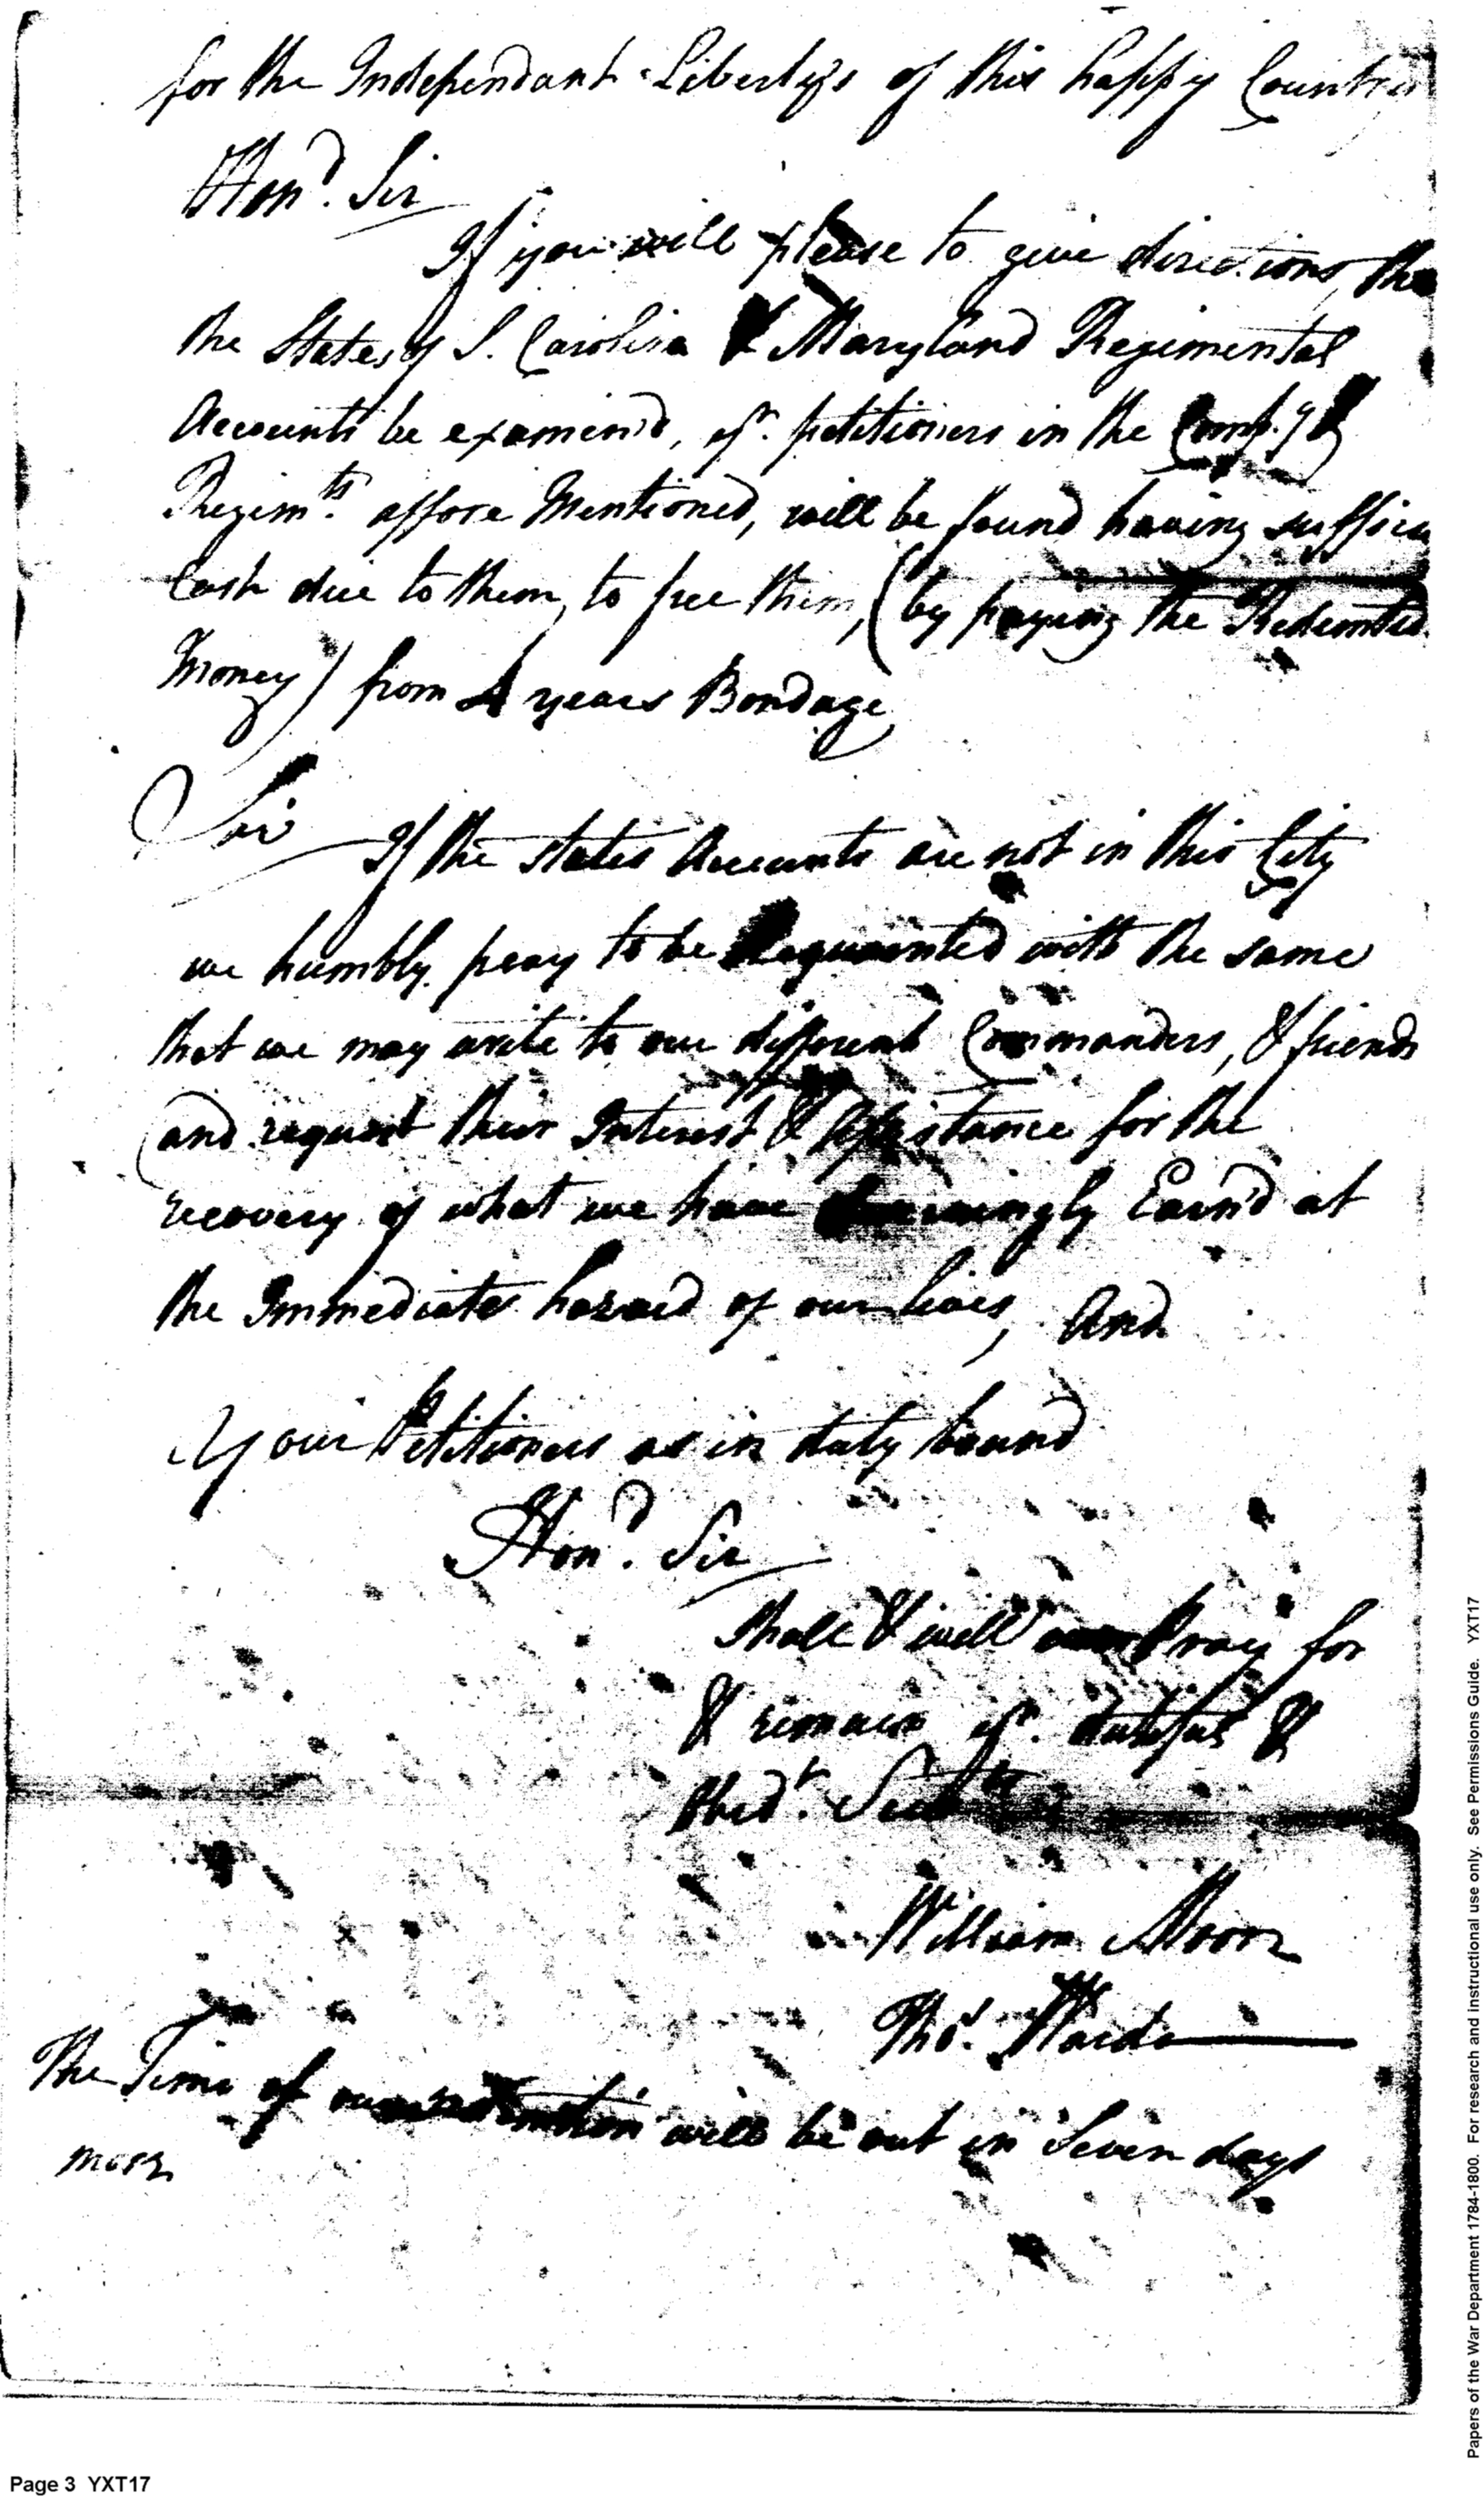 for the Independant Libertys of this happy Countrys
Hon.d Sir
If you will please to give directions, the
the States of S. Carolina & Maryland Regimental
Accounts be examin'd, yr. petitioners in the Comp.y &
Regim.ts affore Mentioned, will be found having suffici
Cash due to them, to free them, (by paying the Redemtion
Money) from 4 years Bondage,
Sir
If the states Accounts are not in this City
we humbly pray to be Acquainted with the same
that we may write to our different Commanders, & friends
and request their Interest & Assistance for the
recovery of what we have Earn'd at
the Immediate hazard of our lives, And
Your Petitioners as in duty bound
Hon.d Sir
Shall & will ever Pray for
& remain yr. dutiful &
Obed.t Serv.ts
William Moore
Thos. Wards
The Time of our redemtion will be out in Seven days
more
Page 3 YXT17
Papers of the War Department 1784-1800. For research and instructional use only. See Permissions Guide. YXT17